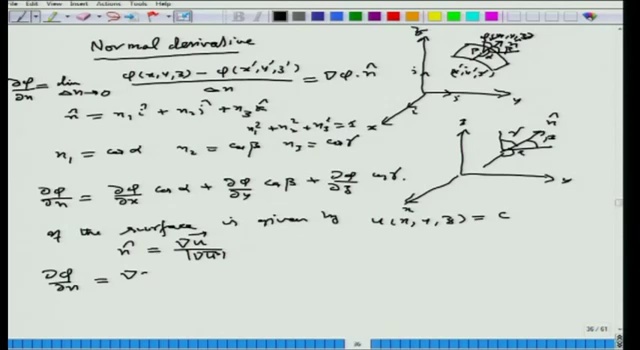 File Edit View Insert Actions Tools Help
Normal derivative
∂φ/∂n = lim Δn→0 (φ(x,y,z) - φ(x',y',z'))/Δn = ∇φ·n̂
n̂ = n₁ î + n₂ ĵ + n₃ k̂
n₁² + n₂² + n₃² = 1
n₁ = cos α n₂ = cos β n₃ = cos γ
∂φ/∂n = ∂φ/∂x cos α + ∂φ/∂y cos β + ∂φ/∂z cos γ.
of the surface is given by u(x, y, z) = c
n̂ = ∇u/|∇u|
∂φ/∂n = ∇
z
y
x
z
n̂
γ
β
α
y
x
36 / 61
36